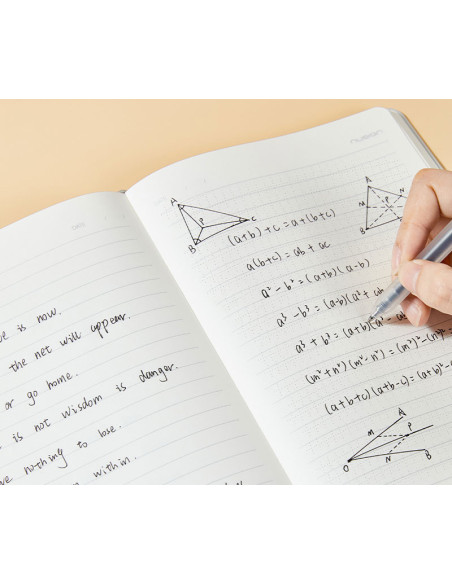 be is now.
the net will appear.
or go home.
is not wisdom is danger.
ve nothing to lose.
within.
A
P
C
B
A
M
N
P
B
(a+b)+c=a+(b+c)
a(b+c)=ab+ac
a²-b²=(a+b)(a-b)
a³-b³=(a-b)(a²+ab
a³+b³=(a+b)(a²-ab
(m²+n²)(m²-n²)=(m²)²-(n²)²
(a+b+c)(a+b-c)=(a+b)²-
A
M
P
O
N
B